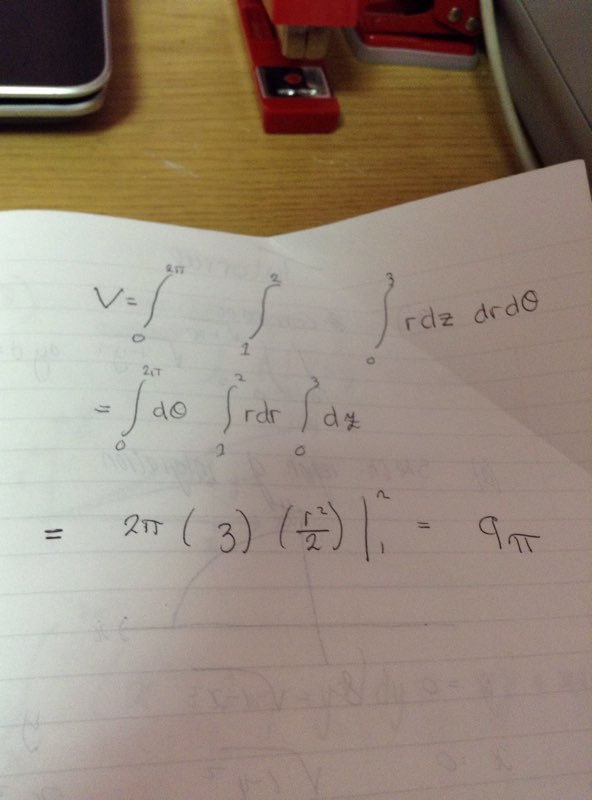 V = ∫₀^{2π} ∫₁^{2} ∫₀^{3} r dz dr dθ
= ∫₀^{2π} dθ ∫₁^{2} r dr ∫₀^{3} dz
= 2π ( 3 ) ( r²/2 ) |₁² = 9π